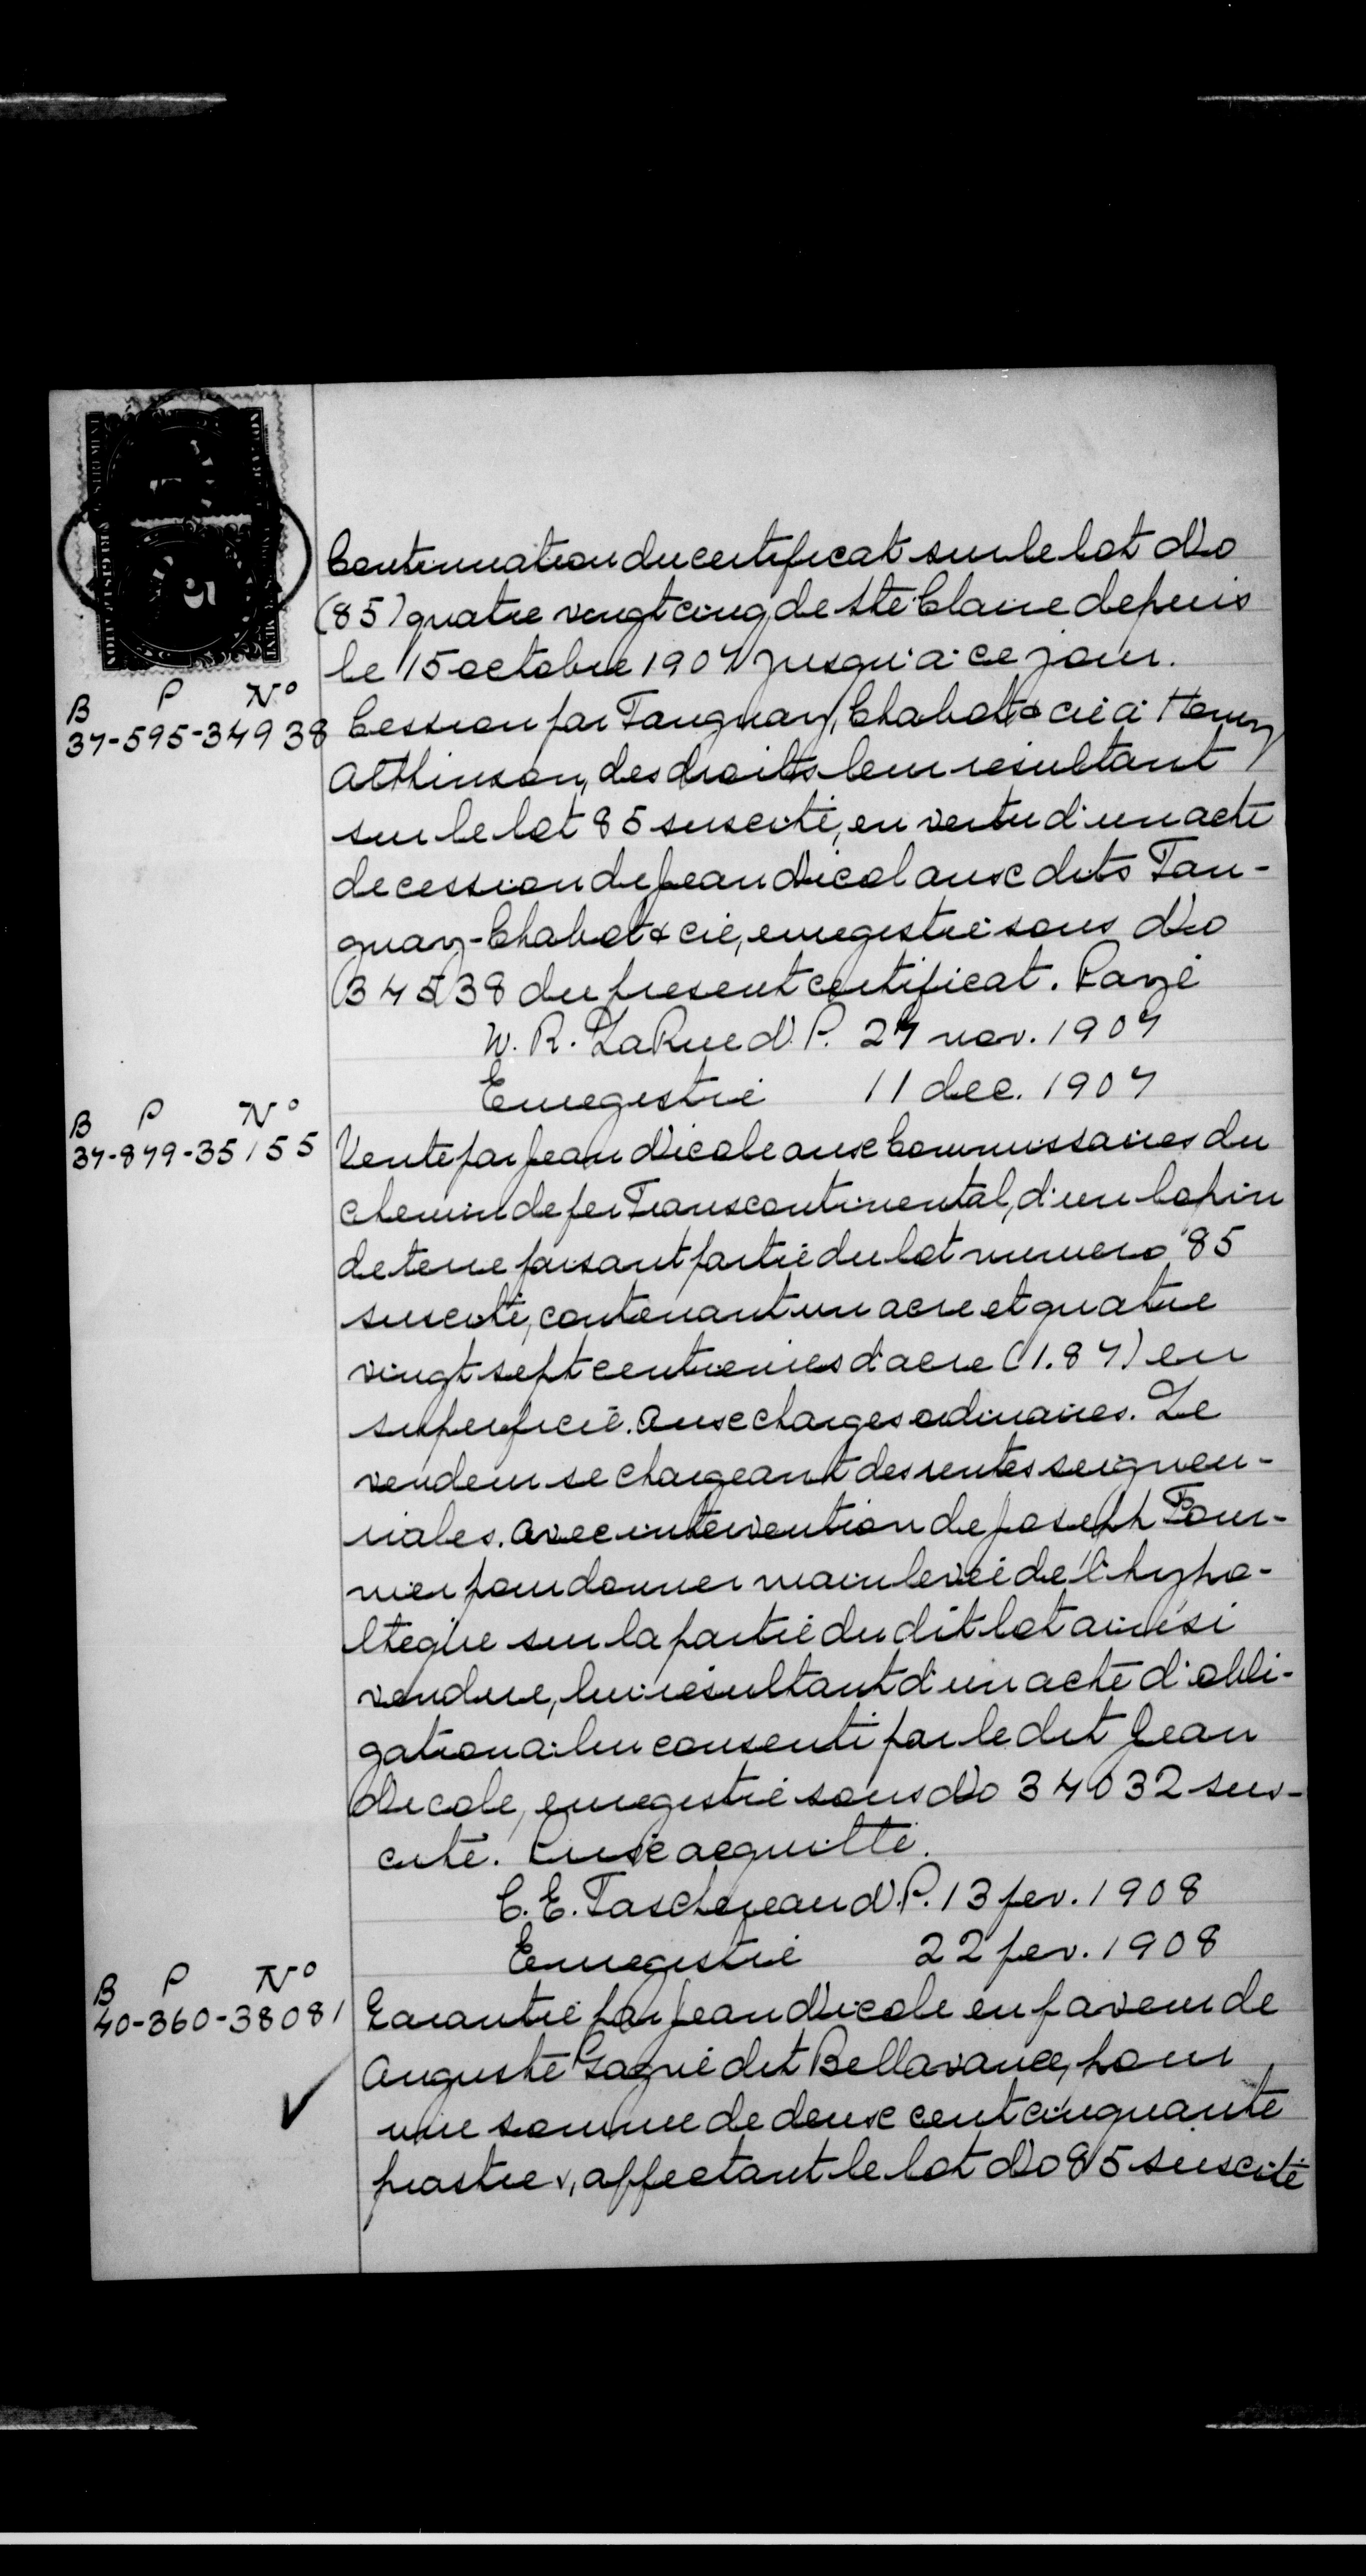 5
Continuation du certificat sur le lot No
(85) quatre vingt cinq de Ste Claire depuis
le 15 octobre 1907 jusqu'à ce jour.
B P No
37-595-34938
Cession par Tanguay, Chabot & cie à Henry
Atkinson, des droits leur résultant
sur le lot 85 suscité, en vertu d'un acte
de cession de Jean Nicol aux dits Tan-
guay-Chabot & cie, enregistré sous No
34538 du présent certificat. Payé
W. R. LaRue N.P. 27 nov. 1907
Enregistré 11 dec. 1907
B P No
37-879-35155
Vente par Jean Nicole aux Commissaires du
chemin de fer Transcontinental, d'un lopin
de terre faisant partie du lot numero 85
suscité, contenant un acre et quatre
vingt sept centiemes d'acre (1.87) en
superficie. Aux charges ordinaires. Le
vendeur se chargeant des rentes seigneu-
riales. Avec intervention de Joseph Four-
nier pour donner mainlevée de l'hypo-
theque sur la partie du dit lot ainsi
vendue, lui résultant d'un acte d'obli-
gation a lui consenti par le dit Jean
Nicole, enregistré sous No 34032 sus-
cité. Prix acquitté.
C. E. Taschereau N.P. 13 fev. 1908
Enregistré 22 fev. 1908
B P No
40-360-38081
Garantie par Jean Nicole en faveur de
Auguste Gagné dit Bellavance, pour
une somme de deux cent cinquante
piastres, affectant le lot No 85 suscité